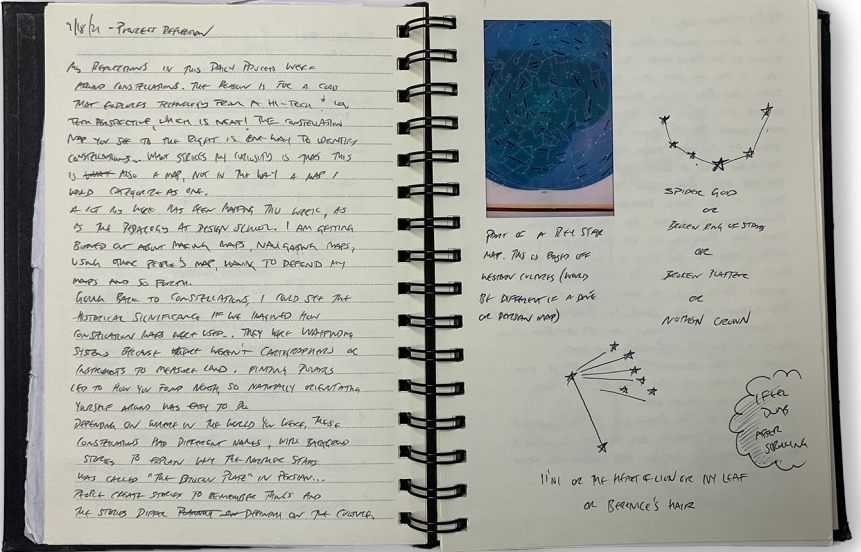 9/8/21 - Process Reflection
My reflections in this Daily Process were
around constellations. The reason is for a class
that explores technology from a hi-tech & low
tech perspective, which is neat! The constellation
map you see to the right is one way to identify
constellations. What strikes my curiosity is that this
is also a map, not in the way a map I
would categorize as one.
A lot my week has been mapping this week, as
is the pedagogy at design school. I am getting
burned out about making maps, navigating maps,
using other people's map, having to defend my
maps and so forth.
Going back to constellations, I could see the
historical significance if we imagined how
constellation maps were used. They were wayfinding
systems because there weren't cartographers or
instruments to measure land. Finding Polaris
led to how you found north, so naturally orientating
yourself around was easy to do.
Depending on where in the world you were, these
constellations had different names, with backend
stories to explain why the norther stars
was called "The Broken Plate" in Persian...
People create stories to remember things and
the stories differ depending on the culture.
Part of a star
map. This is based off
western cultures (would
be different if a Diné
or Persian map)
Spider God
or
Broken Ring of Stars
or
Broken Platter
or
Nothern Crown
I feel
dumb
after
scrolling
or the Heart of Lion or Ivy Leaf
or Berenice's Hair